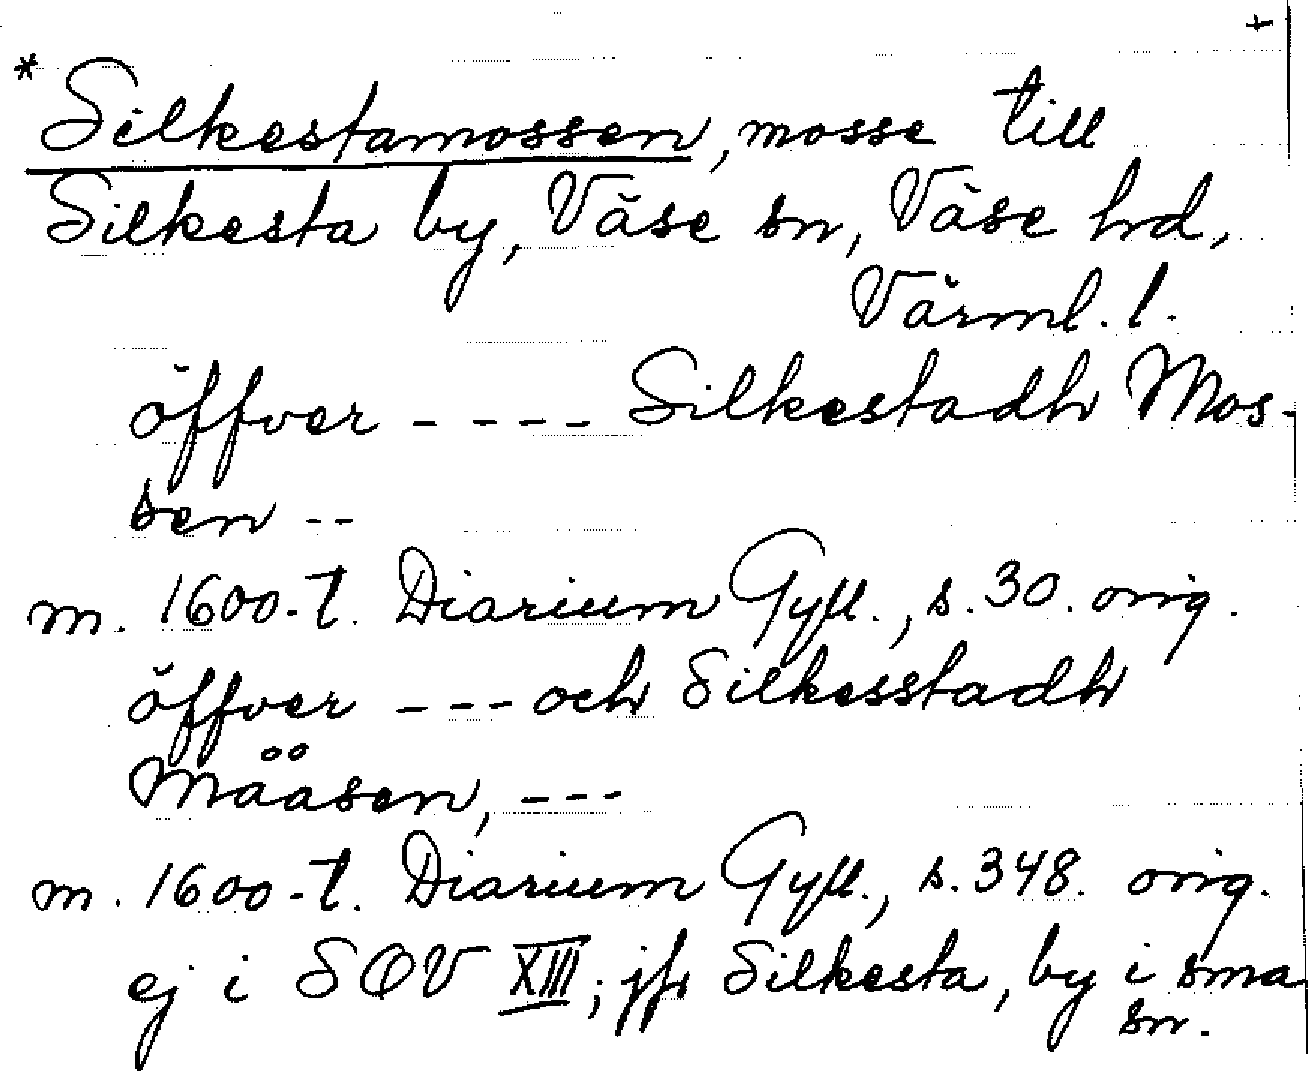 +
*Silkestamossen, mosse till
Silkesta by, Väse sn, Väse hd,
Värml. l.
öffver - - - - Silkestadh Mos-
sen --
m. 1600-t. Diarium Gyll., s. 30. orig.
öffver - - - och Silkesstadh
Mååsen, ---
m. 1600-t. Diarium Gyll., s. 348. orig.
ej i SOV XIII; jfr Silkesta, by i sma
sn.